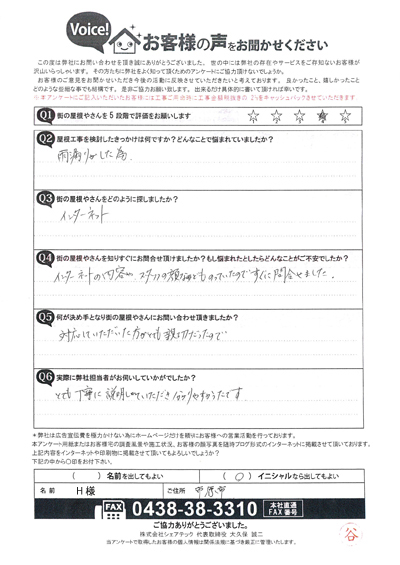 Voice!
お客様の声をお聞かせください
この度は弊社にお問い合わせを頂き誠にありがとうございました。世の中は弊社の存在やサービスをご存知ないお客様が
沢山いらっしゃいます。その方たちに弊社をよく知って頂くためのアンケートにご協力頂けないでしょうか。
お客様のご意見をお聞かせいただき今後の活動に反映させていただきたいと考えております。良かったこと、嬉しかったこと
どのような些細な事でも結構です。是非ご協力お願い致します。出来るだけ具体的に書いて頂ければ幸いです。
Q1 街の屋根やさんを5段階で評価をお願いします
☆ ☆ ☆ ★ ☆
Q2 屋根工事を検討したきっかけは何ですか?どんなことで悩まれていましたか?
雨漏りがした為。
Q3 街の屋根やさんをどのように探しましたか?
インターネット
Q4 街の屋根やさんを知りすぐにお問合せ頂けましたか?もし悩まれたとしたらどんなことがご不安でしたか?
インターネットの内容や、スタッフの顔などものっていたのですぐに問合せました。
Q5 何が決め手となり街の屋根やさんにお問い合わせ頂きましたか?
対応していただいた方がとても親切だったので
Q6 実際に弊社担当者がお伺いしていかがでしたか?
とても丁寧に説明していただき 分りやすかったです
*弊社は広告宣伝費を極力かけない為にホームページだけを頼りにお客様への営業活動を行っております。
本アンケート用紙またはお客様宅の調査風景や施工状況、お客様の顔写真を随時ブログ形式のインターネットに掲載させて頂いております。
上記内容をインターネットや印刷物に掲載させて頂いてもよろしいでしょうか?
下記の中から○印をお付け下さい。
( ) 名前を出してもよい ( ○ ) イニシャルなら出してもよい
名前 H 様 ご住所 市原市
FAX 0438-38-3310 本社直通 FAX番号
ご協力ありがとうございました。
株式会社シェアテック 代表取締役 大久保 誠二
当アンケートで取得したお客様の個人情報は関係法規に基づき厳正に管理いたします。
谷